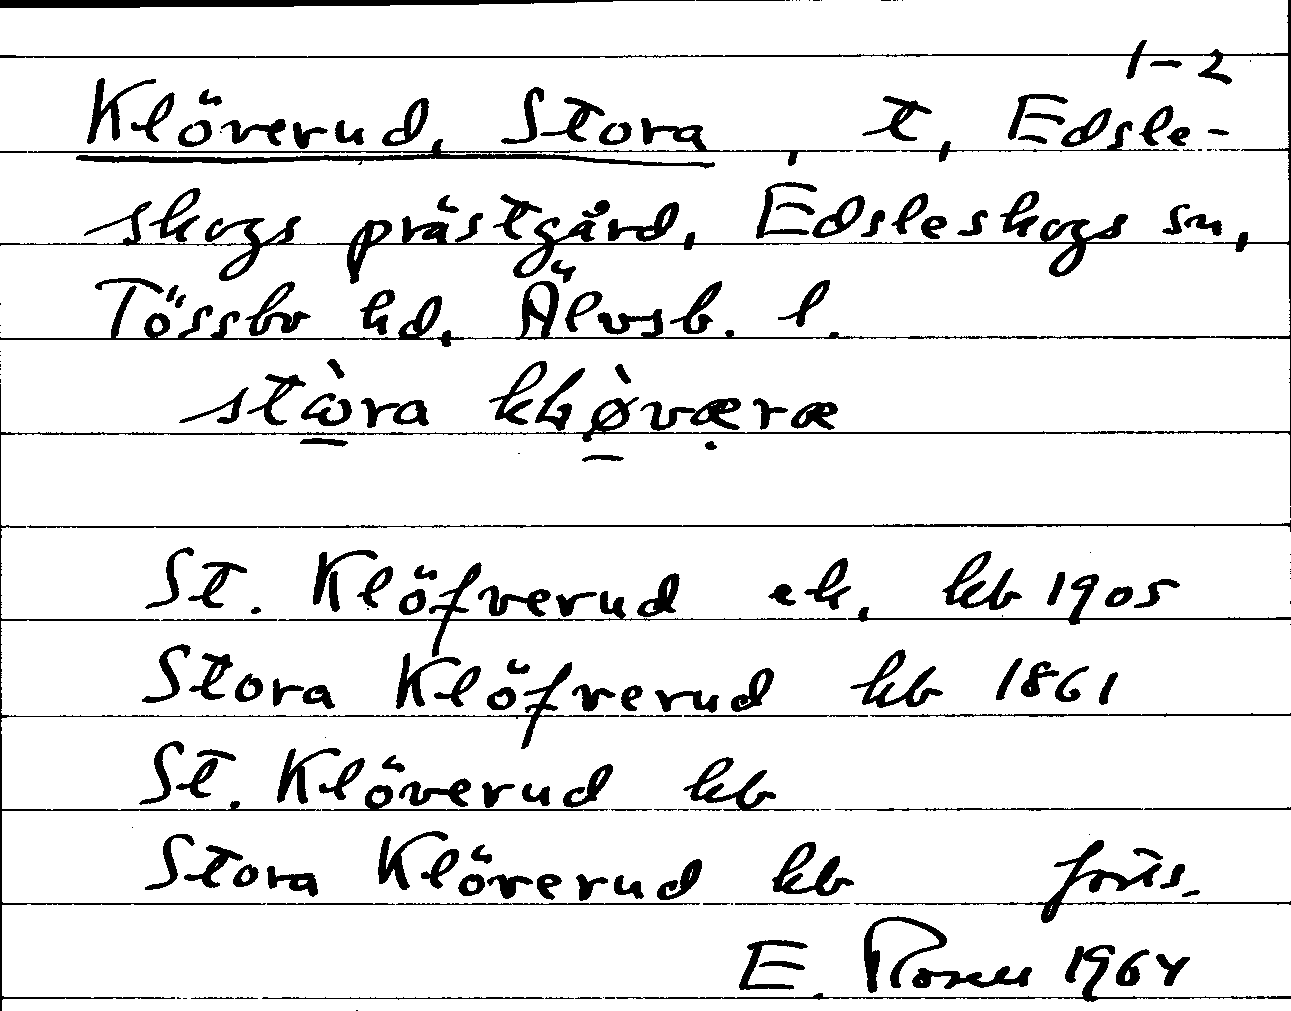 1-2
Klöverud, Stora, t, Edsle-
skogs prästgård, Edsleskogs sn,
Tössbo hd, Älvsb. l.
stὼra kḷø̀væræ
St. Klöfverud ek. kb 1905
Stora Klöfverud kb 1861
St. Klöverud kb
Stora Klöverud kb forts.
E. Rosell 1964